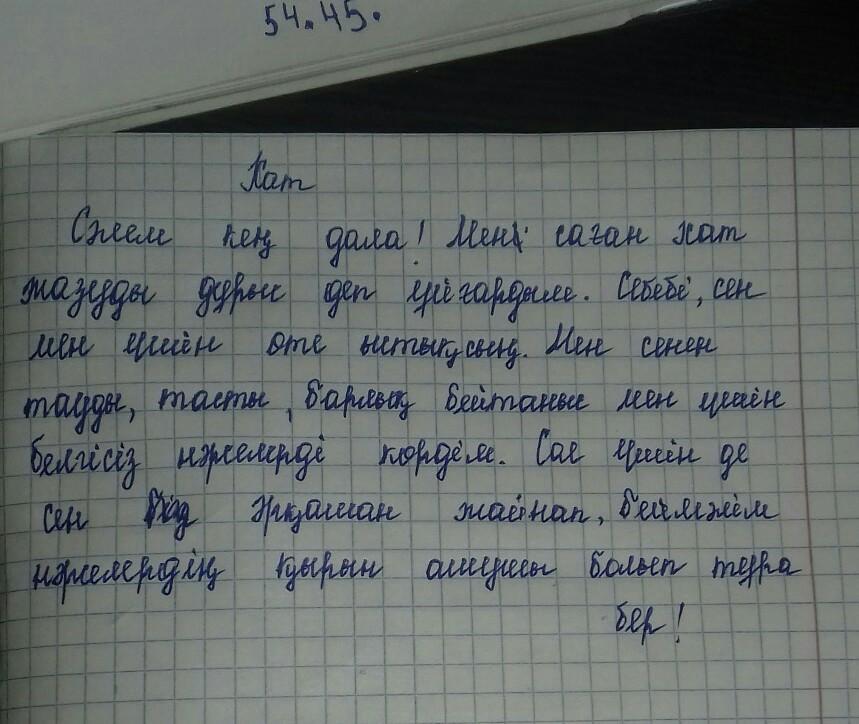 54.45.
Хат
Сәлем кең дала! Мен саған хат
жазуды дұрыс деп ұйғардым. Себебі, сен
мен үшін өте ыстықсың. Мен сенен
тауды, тасты, барлық бейтаныс мен үшін
белгісіз нәрселерді көрдім. Сол үшін де
сен әрқашан жайнап, беймәлім
нәрселердің қырын ашушы болып тұра
бер!